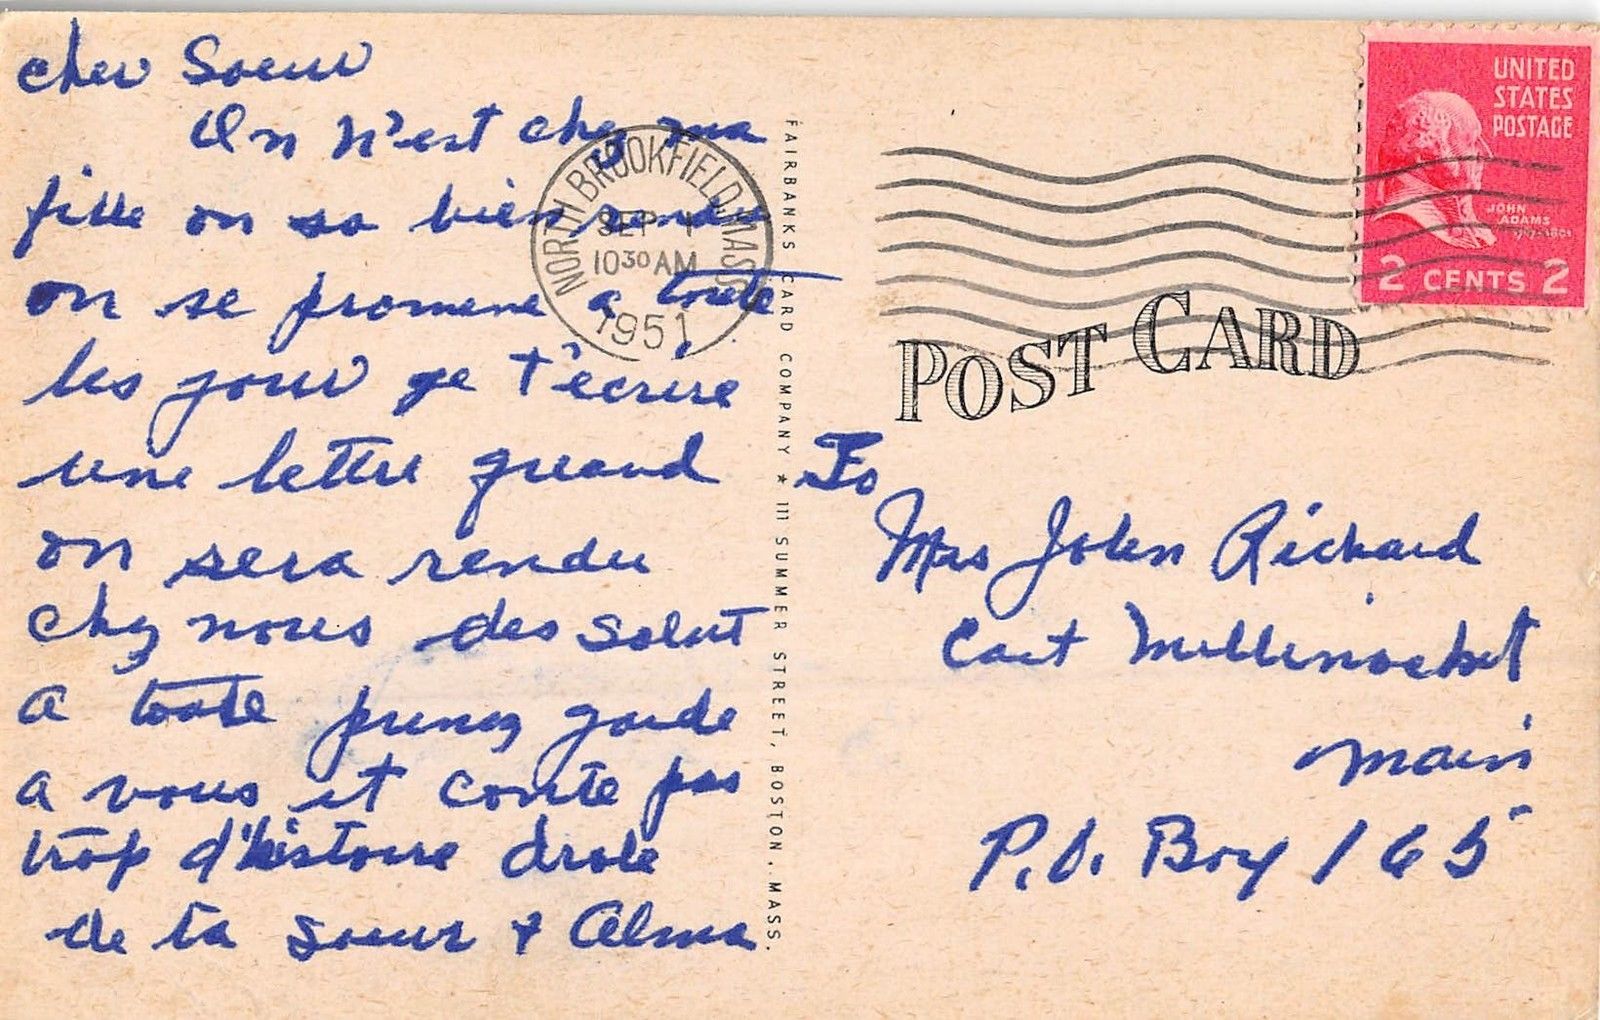 cher Soeur
On n'est chez ma
fille on sa bien rendu
on se promene a toute
les jour ge t'ecrire
une lettre greand
on sera rendu
chez nous des salut
a toute prenez garde
a vous et conte pas
trop d'histoire drole
de ta soeur & Alma
NORTH BROOKFIELD, MASS.
SEP 1
10 30 AM
1951
FAIRBANKS CARD COMPANY ★ 111 SUMMER STREET, BOSTON, MASS.
UNITED
STATES
POSTAGE
JOHN
ADAMS
1797-1801
2 CENTS 2
POST CARD
To
Mrs John Richard
East Millinocket
Main
P.O. Box 165